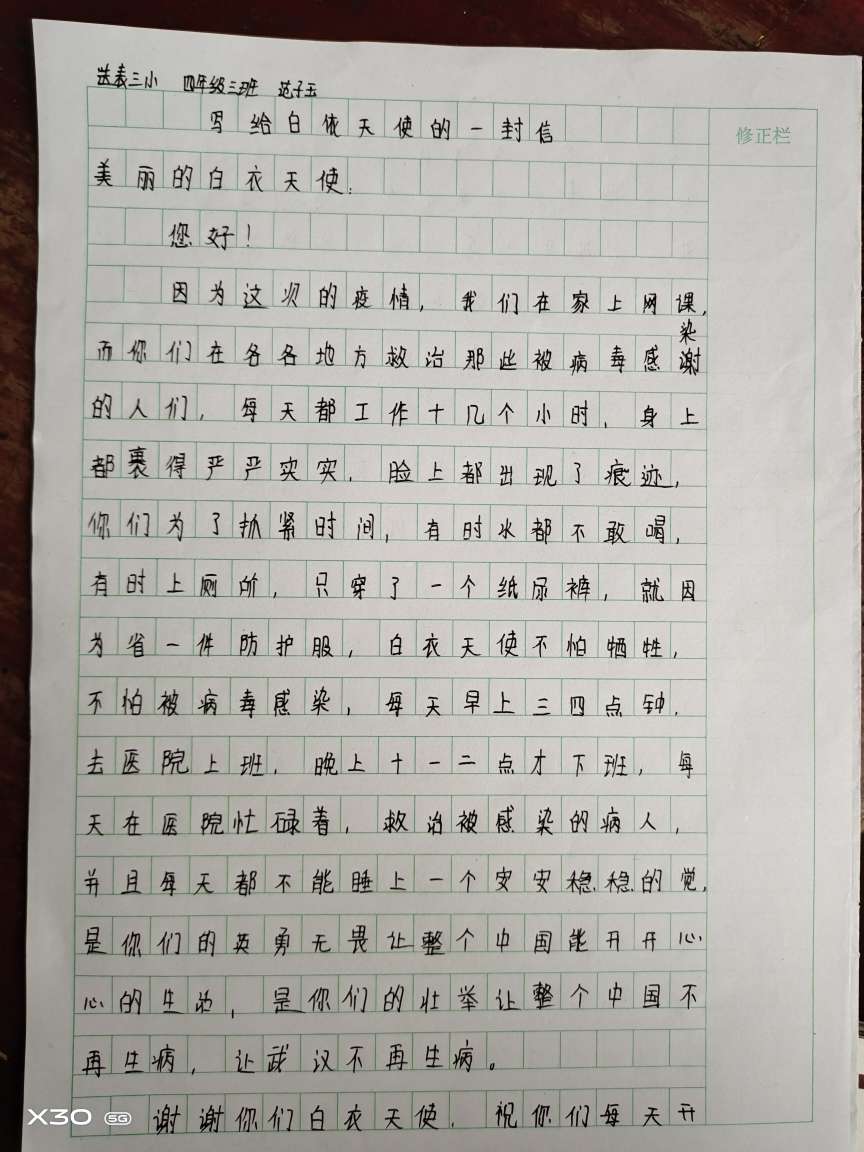 送表三小 四年级三班 范子玉
修正栏
写给白依天使的一封信
美丽的白衣天使:
您好!
因为这次的疫情,我们在家上网课,
染
而你们在各各地方救治那些被病毒感谢
的人们,每天都工作十几个小时,身上
都裹得严严实实,脸上都出现了痕迹,
你们为了抓紧时间,有时水都不敢喝,
有时上厕所,只穿了一个纸尿裤,就因
为省一件防护服,白衣天使不怕牺牲,
不怕被病毒感染,每天早上三四点钟,
去医院上班,晚上十一二点才下班,每
天在医院忙碌着,救治被感染的病人,
并且每天都不能睡上一个安安稳稳的觉,
是你们的英勇无畏让整个中国能开开心
心的生活,是你们的壮举让整个中国不
再生病,让武汉不再生病。
谢谢你们白衣天使,祝你们每天开
X30 5G